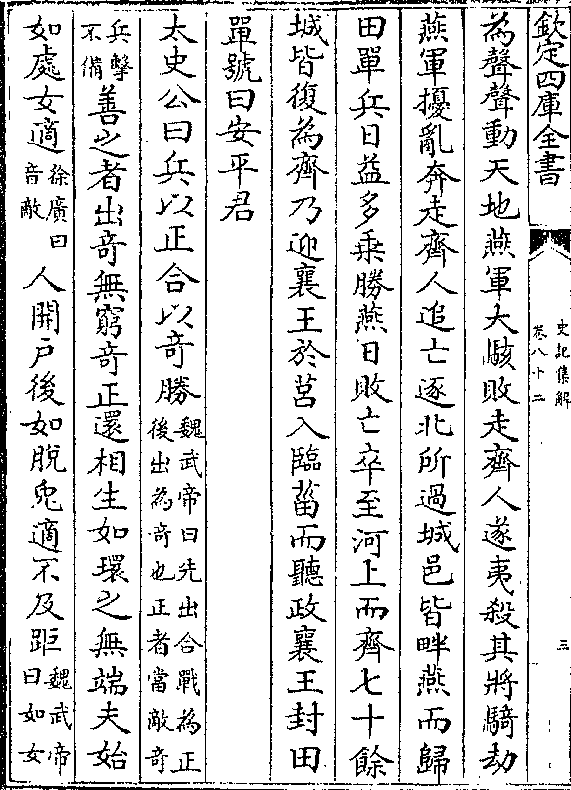 欽定四庫全書
史記集解
卷八十二
三
為聲聲動天地燕軍大駭敗走齊人遂夷殺其將騎劫
燕軍擾亂奔走齊人追亡逐北所過城邑皆畔燕而歸
田單兵日益多乗勝燕日敗亡卒至河上而齊七十餘
城皆復為齊乃迎襄王於莒入臨菑而聽政襄王封田
單號曰安平君
太史公曰兵以正合以奇勝魏武帝曰先出合戰為正後出為奇也正者當敵奇
兵擊不備善之者出奇無窮奇正還相生如環之無端夫始
如處女適徐廣曰音敵人開戸後如脱兎適不及距魏武帝曰如女